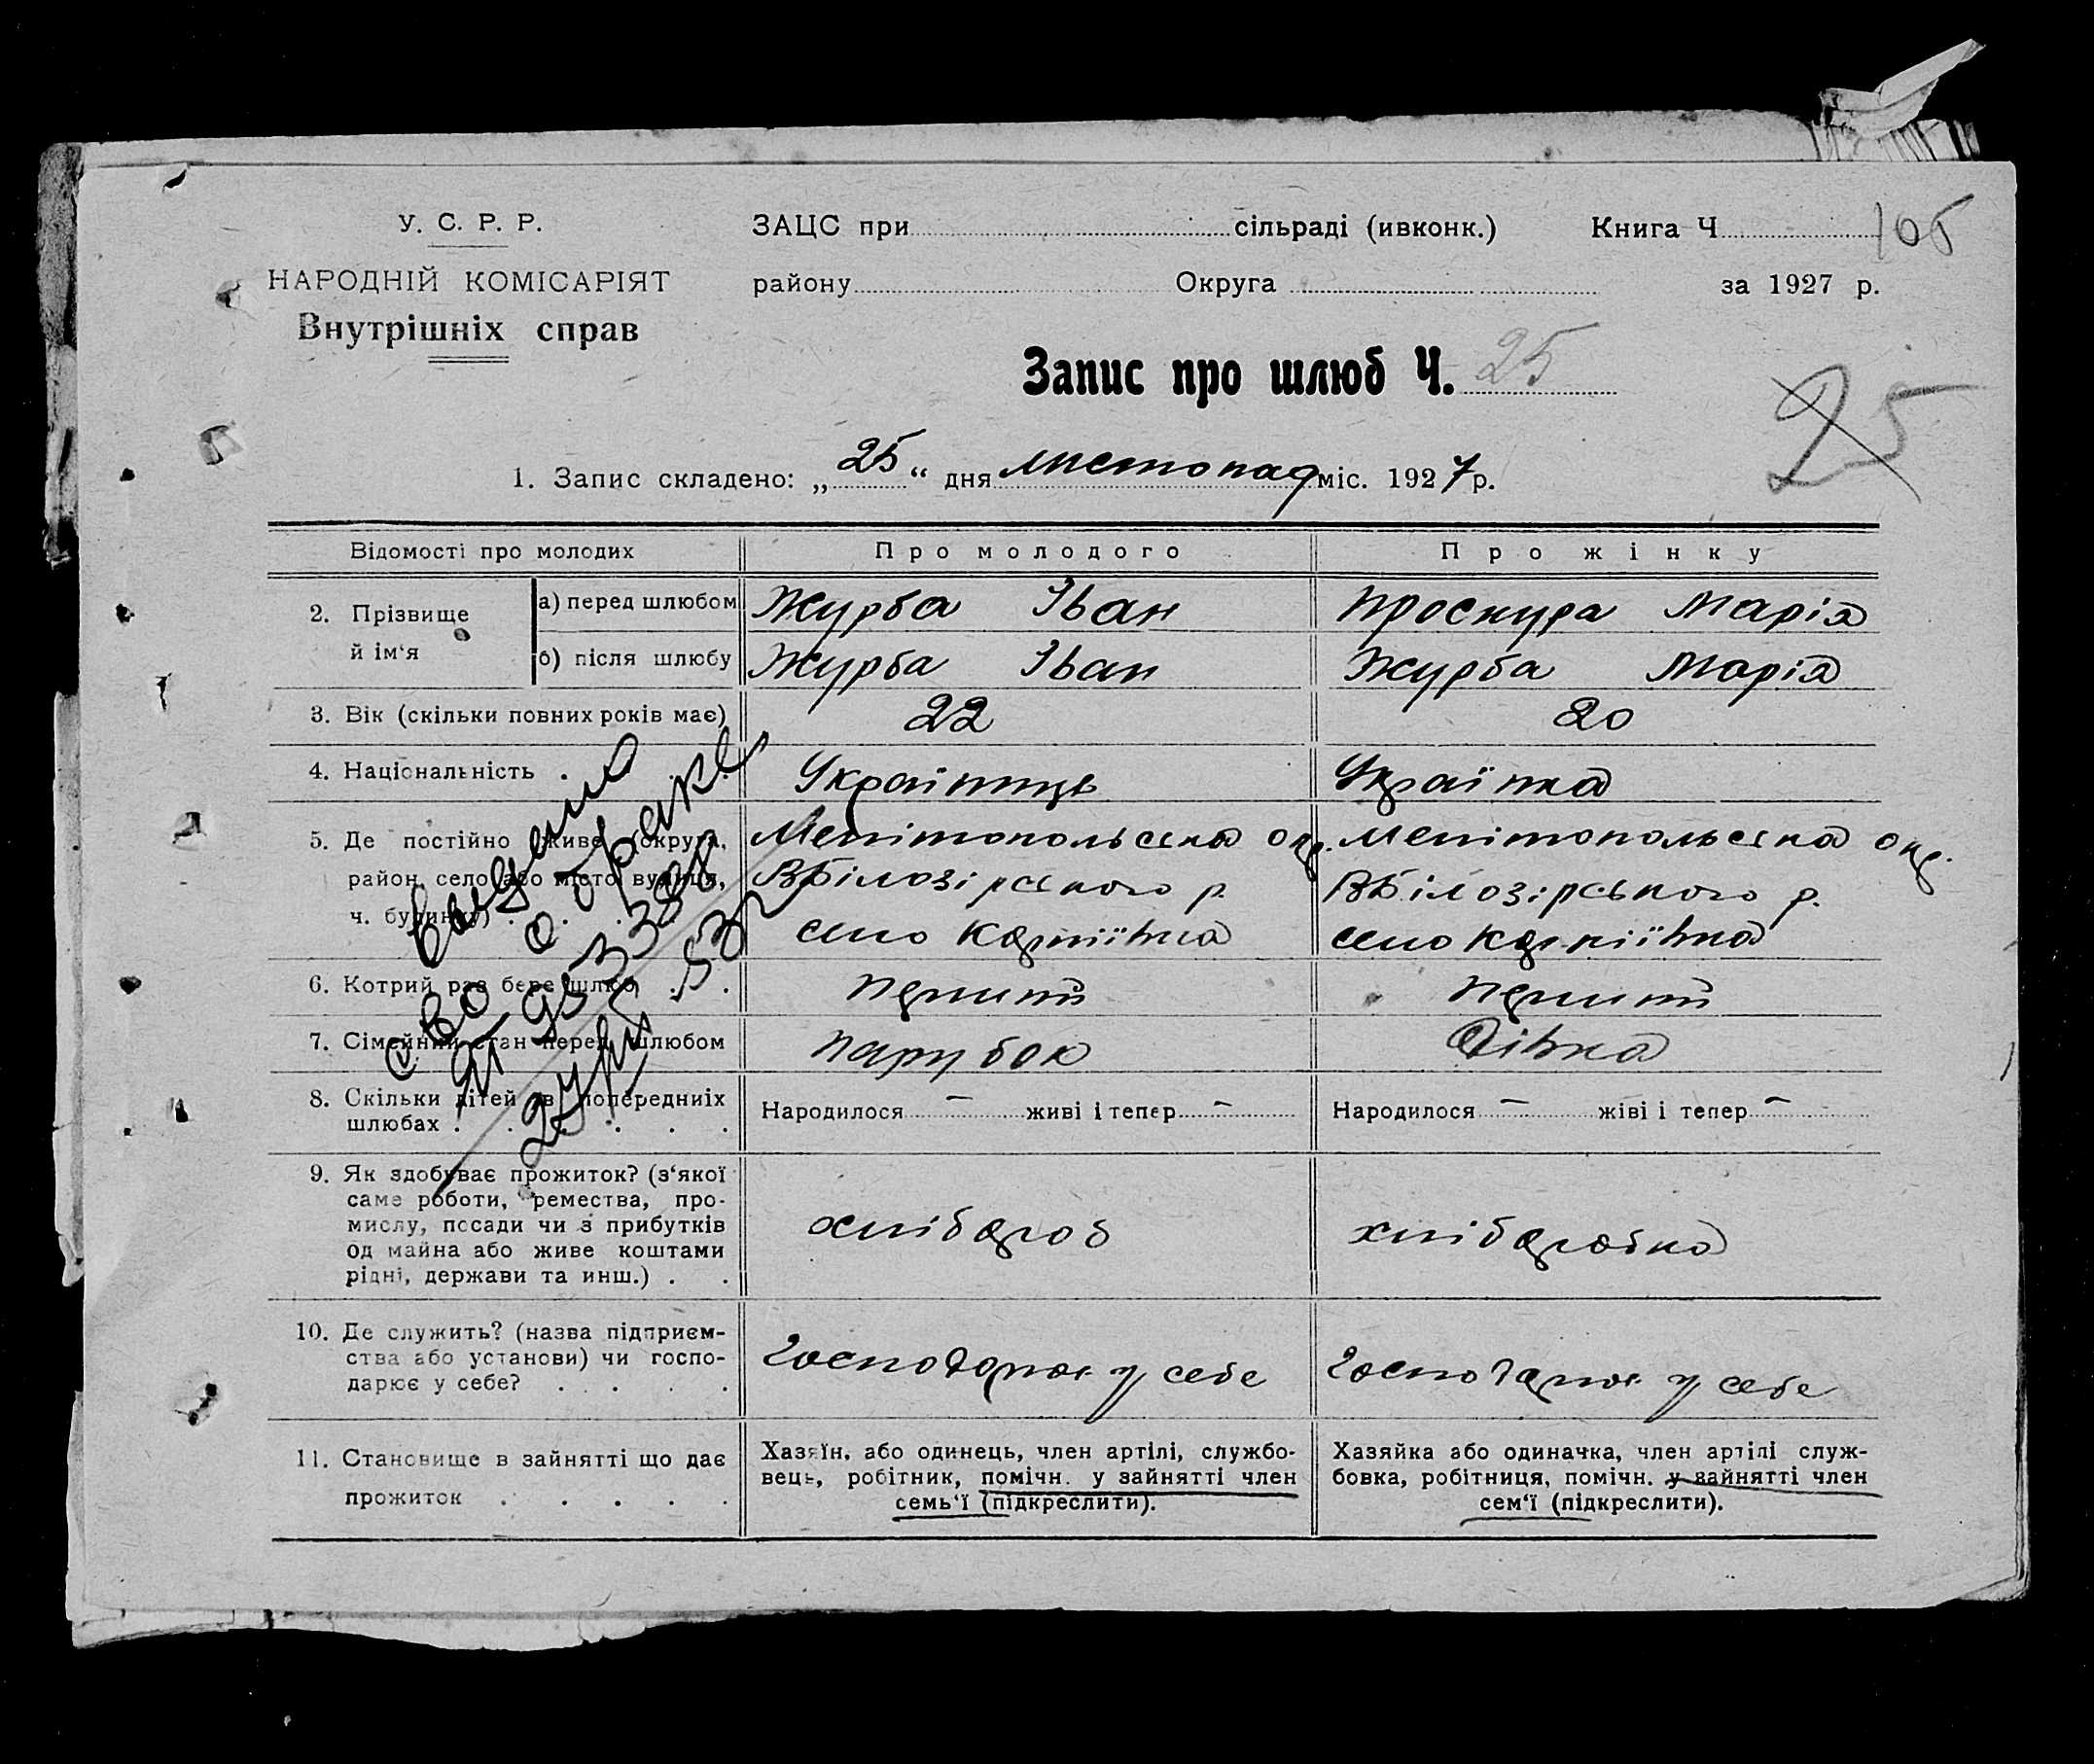 У. С. Р. Р.
НАРОДНІЙ КОМІСАРІЯТ
Внутрішніх справ
ЗАЦС при сільраді (ивконк.) Книга Ч
району Округа за 1927 р.
Запис про шлюб Ч. 25
25
1. Запис складено: „25“ дня листопад міс. 1927 р.
Відомості про молодих Про молодого Про жінку
2. Прізвище й ім‘я
а) перед шлюбом Журба Іван Проскура Марія
б) після шлюбу Журба Іван Журба Марія
3. Вік (скільки повних років має) 22 20
4. Національність . Українець Українка
5. Де постійно живе (округа,
район, село або місто, вулиця,
ч. будинку)
Мелітопольська окр.
ВБілозірського р.
село Карпіївка
Мелітопольська окр.
ВБілозірського р.
село Карпіївка
6. Котрий раз бере шлюб . перший перший
7. Сімейний стан перед шлюбом парубок дівка
8. Скільки дітей в попередниіх
шлюбах . . . . . .
Народилося — живі і тепер —
Народилося — жіві і тепер —
9. Як здобуває прожиток? (з‘якої
саме роботи, ремества, про-
мислу, посади чи з прибутків
од майна або живе коштами
рідні, держави та инш.) . .
хлібороб
хліборобка
10. Де служить? (назва підприєм-
ства або установи) чи госпо-
дарює у себе? . . . .
Господарює у себе
Господарює у себе
11. Становище в зайнятті що дає
прожиток . . . . .
Хазяїн, або одинець, член артілі, службо-
вець, робітник, помічн. у зайнятті член
семь‘ї (підкреслити).
Хазяйка або одиначка, член артілі служ-
бовка, робітниця, помічн. у зайнятті член
сем‘ї (підкреслити).
Выдано
о браке